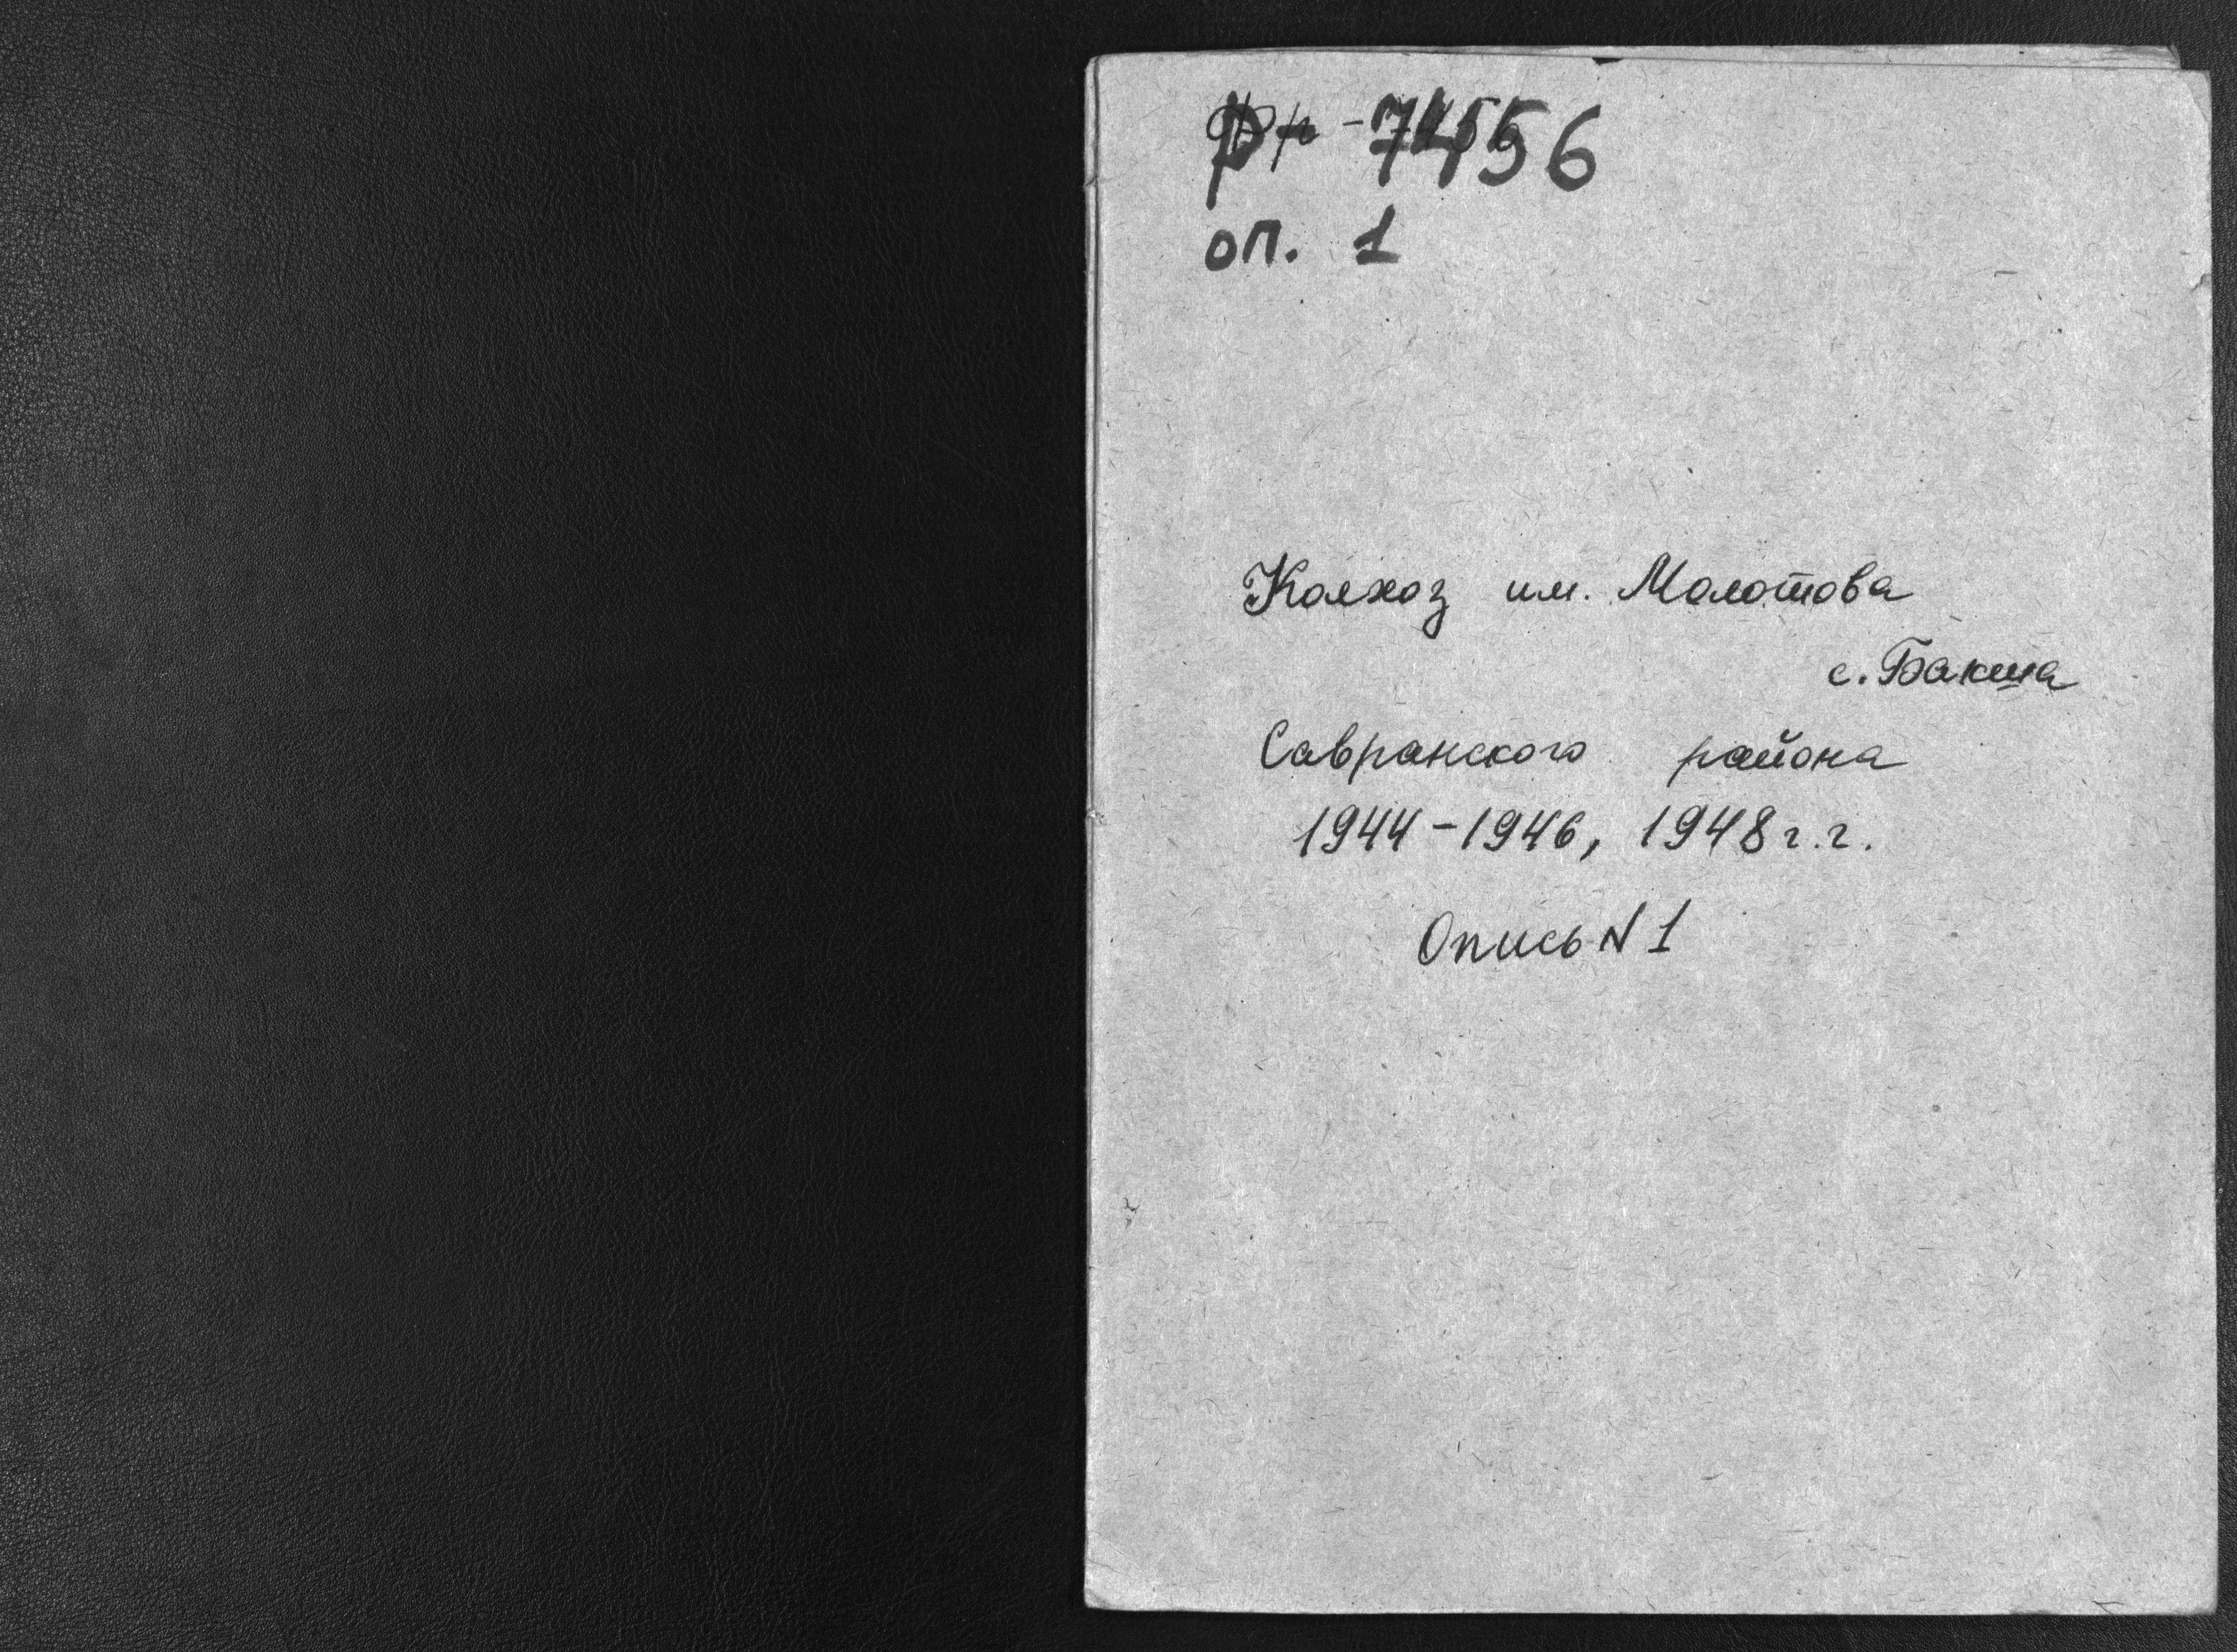 р-7456
оп. 1
Колхоз им. Молотова
с. Бакша
Савранского района
1944-1946, 1948 г.г.
Опись N 1